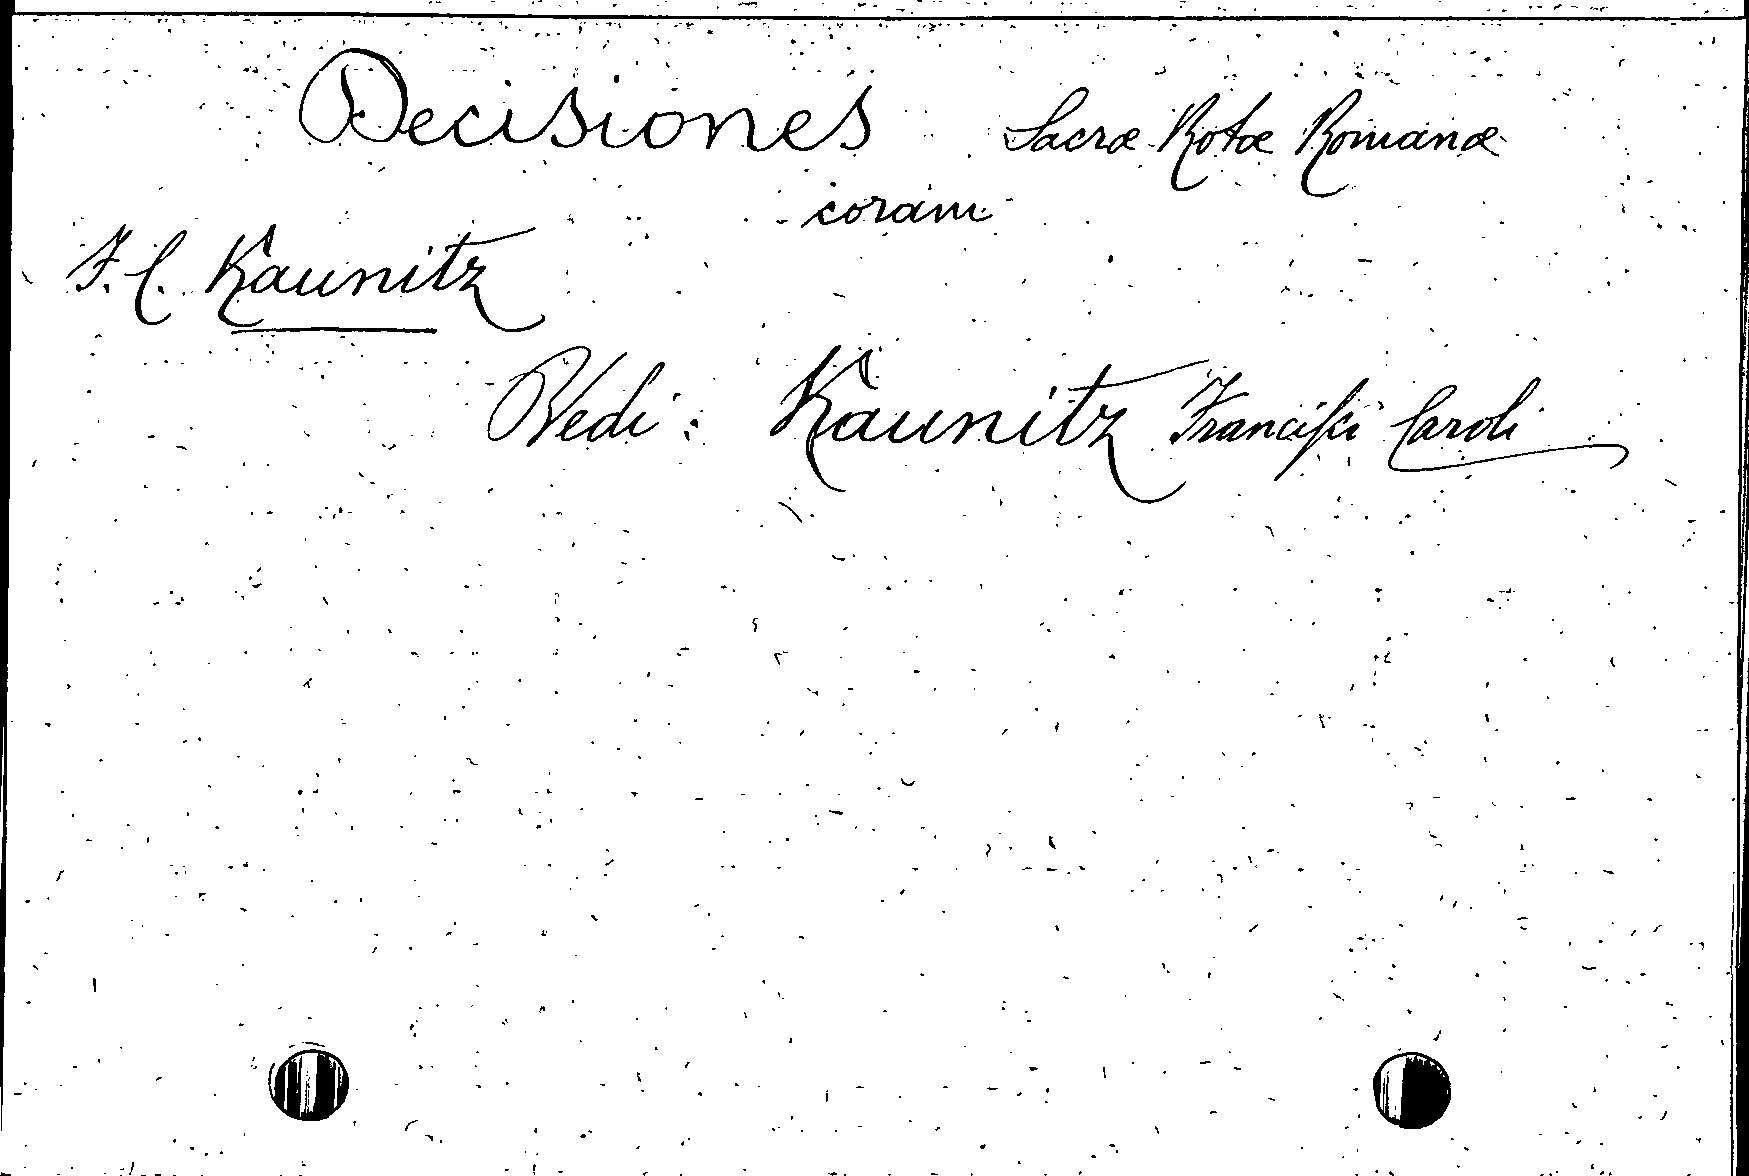 Decisiones Sacræ Rotæ Romanæ
coram
F. C. Kaunitz
Vedi: Kaunitz Francisci Caroli